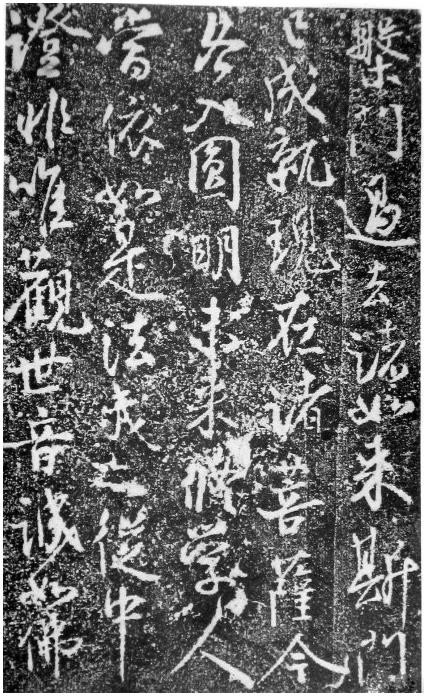 槃門過去諸如来斯門
已成就現在諸菩薩今
各入圓明未来修學人
當依如是法我亦從中
證非唯觀世音誠如佛